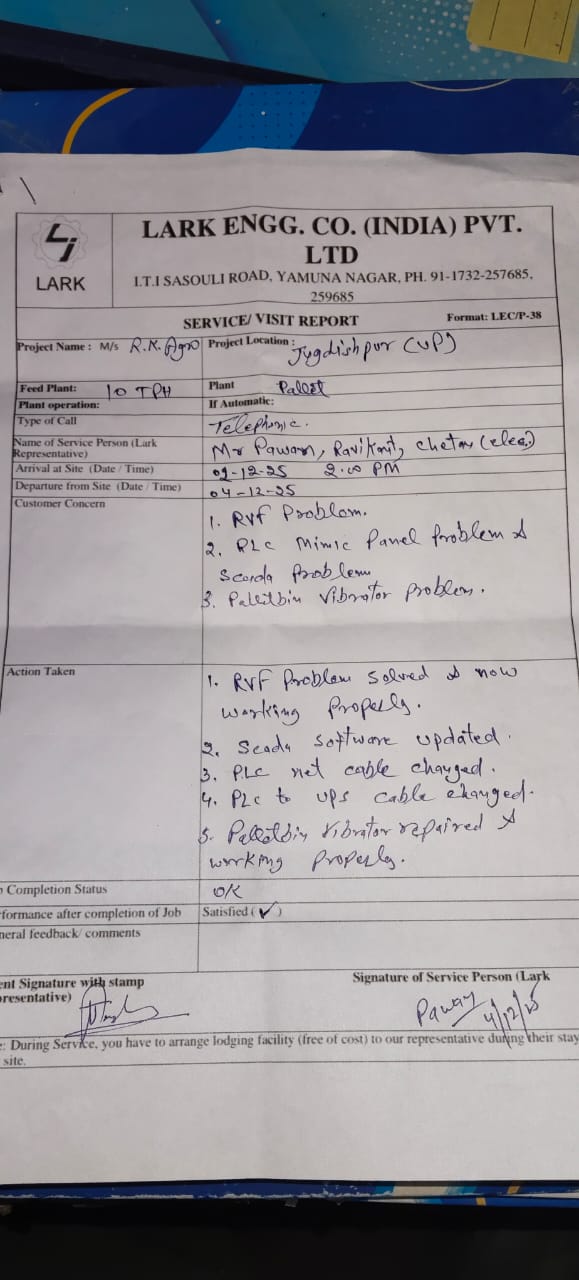 LARK
LARK ENGG. CO. (INDIA) PVT.
LTD
I.T.I SASOULI ROAD, YAMUNA NAGAR, PH. 91-1732-257685,
259685
SERVICE/ VISIT REPORT Format: LEC/P-38
Project Name : M/s R.K. Agro Project Location : Jygdishpur (UP)
Feed Plant: 10 TPH Plant Pallet
Plant operation: If Automatic:
Type of Call Telephonic.
Name of Service Person (Lark
Representative) Mr Pawan, Ravikant, Chetan (elec.)
Arrival at Site (Date / Time) 02-12-25 2.00 PM
Departure from Site (Date / Time) 04-12-25
Customer Concern
1. RVF Problem.
2. PLC Mimic Panel Problem &
Scada Problem
3. Palletbin Vibrator Problem.
Action Taken
1. RVF Problem Solved & now
working Properly.
2. Scada Software updated.
3. PLC net cable changed.
4. PLC to UPS cable changed.
5. Palletbin Vibrator repaired &
working Properly.
Completion Status OK
formance after completion of Job Satisfied (✓)
neral feedback/ comments
ent Signature with stamp Signature of Service Person (Lark
presentative)
Pawan 4/12/25
: During Service, you have to arrange lodging facility (free of cost) to our representative during their stay
site.